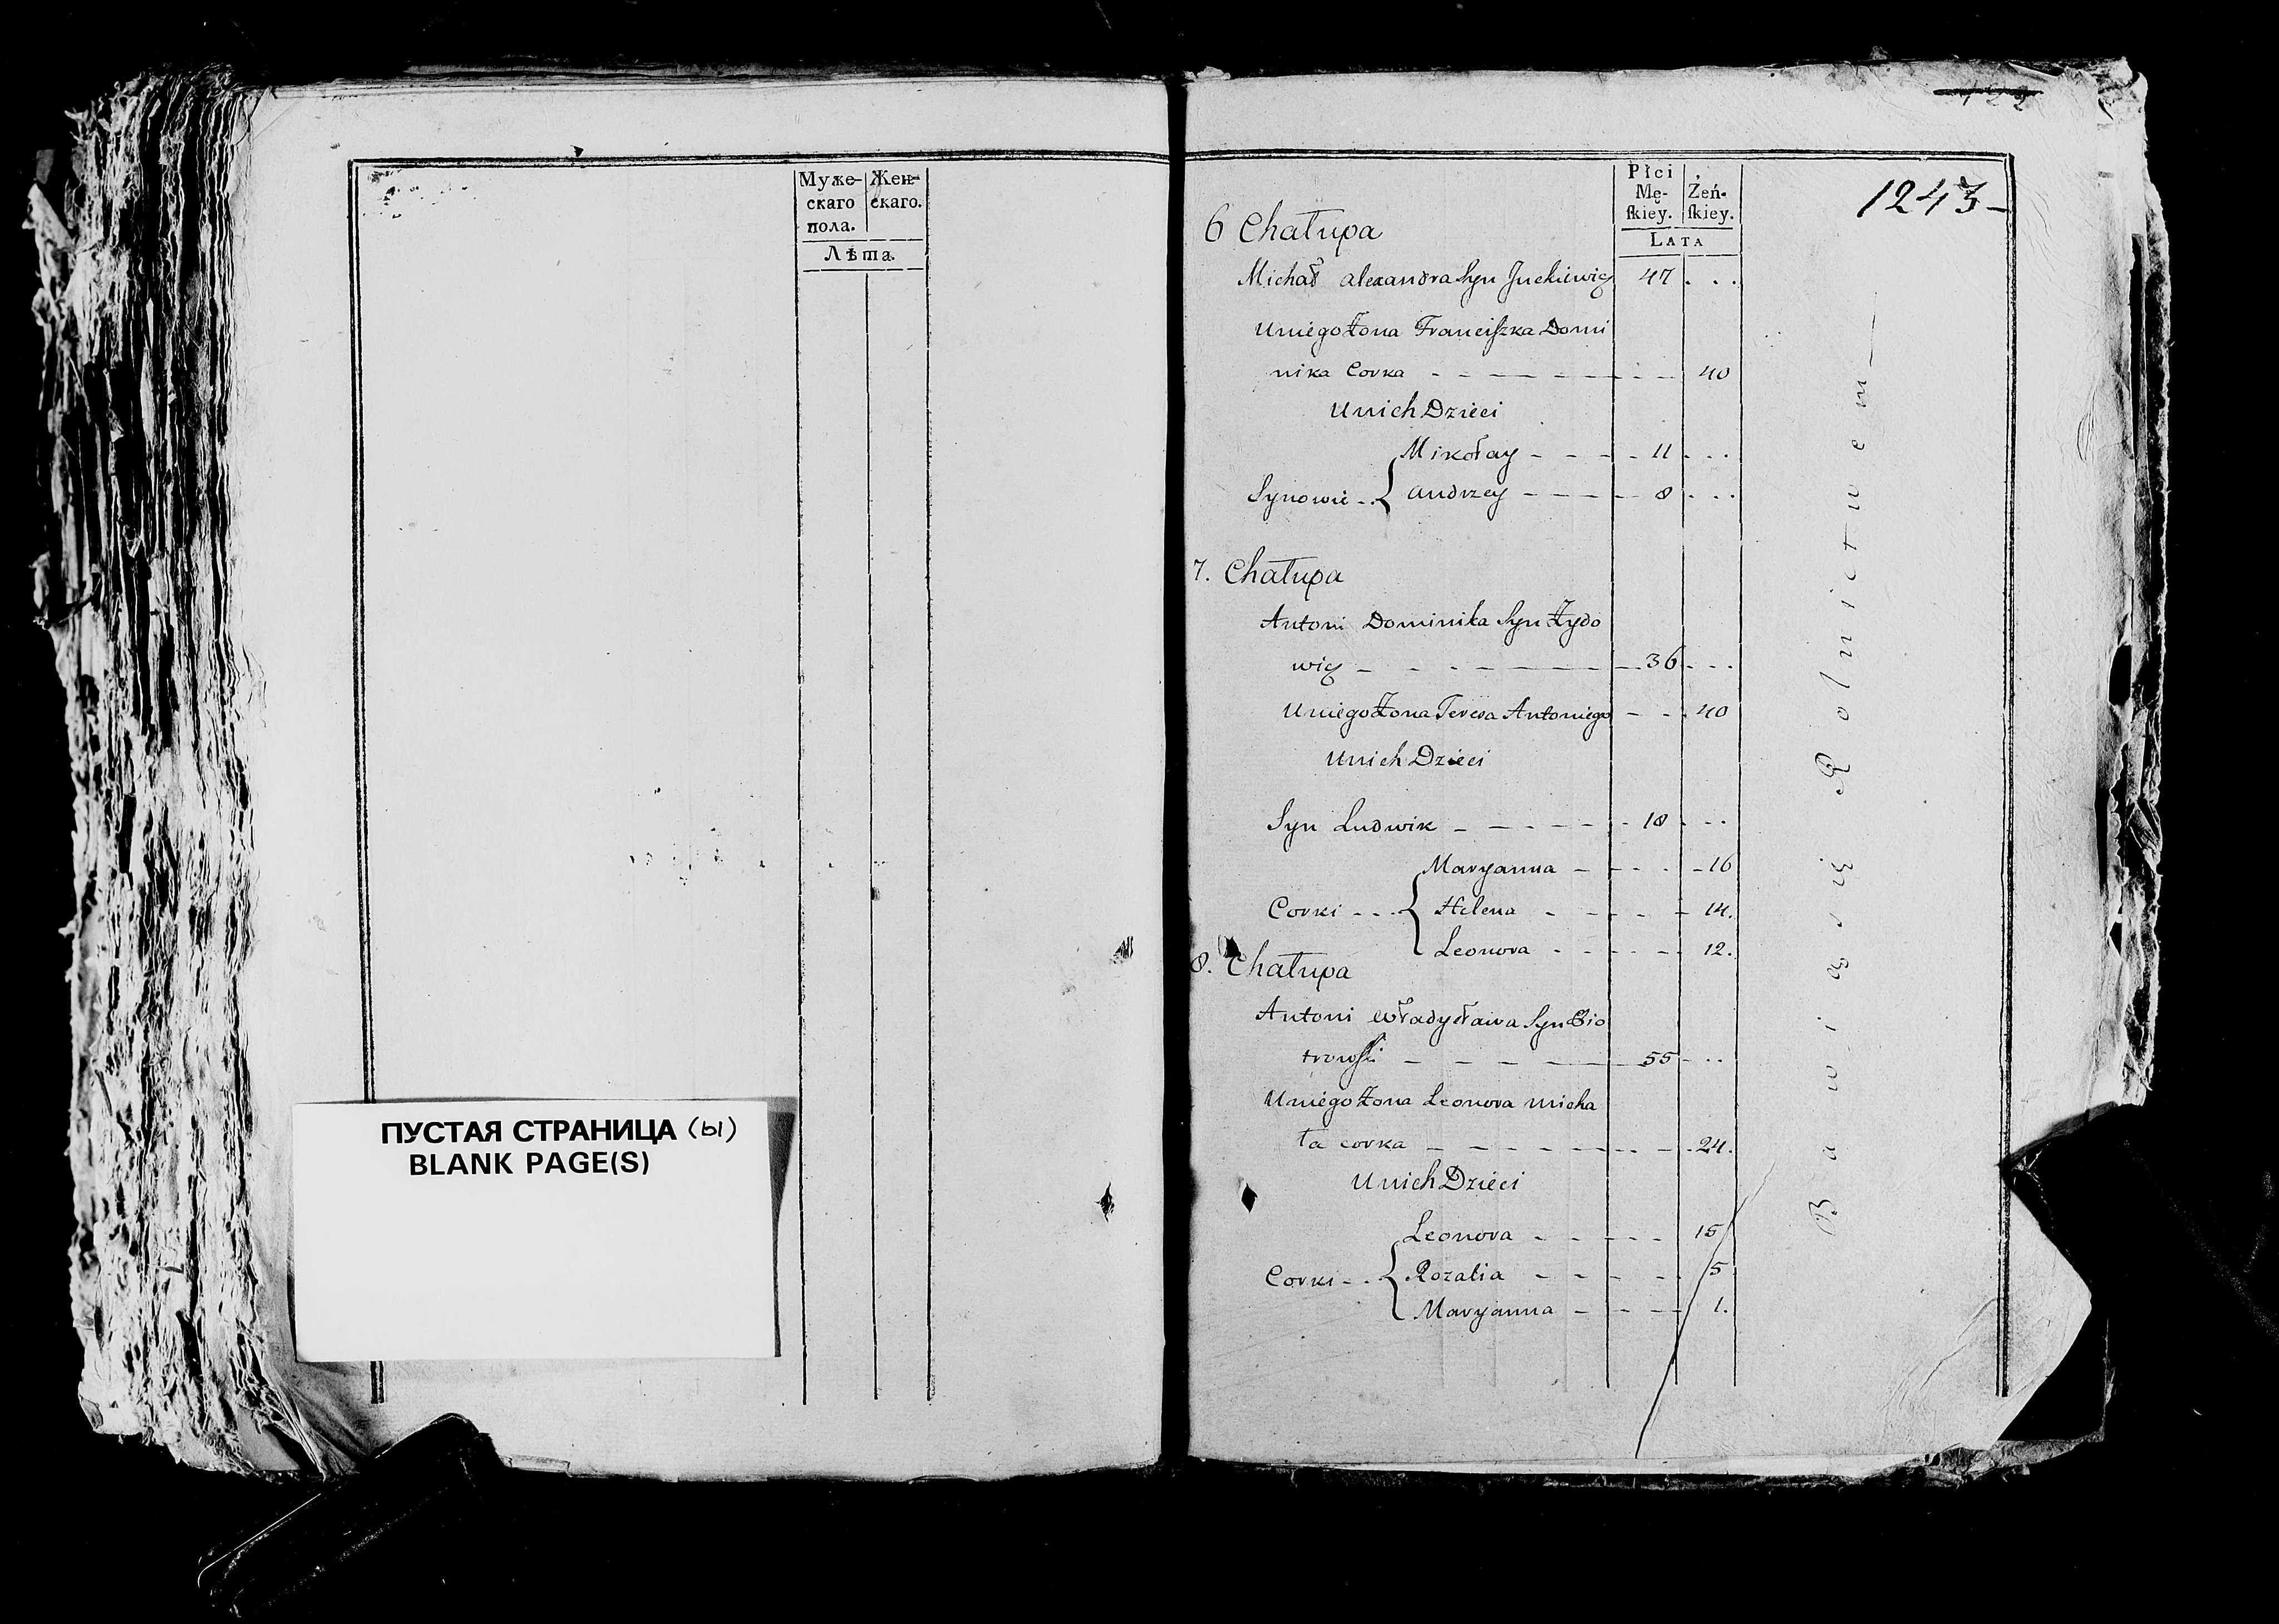 Муже-
скаго
пола.
Жен-
скаго.
Лѣта.
ПУСТАЯ СТРАНИЦА (ы)
BLANK PAGE(S)
122
1243-
Płci
Mę-
ſkiey.
Żeń-
ſkiey.
LATA
6 Chałupa
Michał Alexandra Syn Juckiewicz 47 . . .
Uniego Żona Franciſzka Domi
nika Corka - - - - - - - 40
Unich Dzieci
Mikołay - - - - 11 . . .
Synowie - . { Andrzey - - - - 8 . . .
7. Chałupa
Antoni Dominika Syn Żydo
wicz - - - - - - - 36 . . .
Uniego Żona Teresa Antoniego - - . 40
Unich Dzieci
Syn Ludwik - - - - - - 18 . . .
Maryanna - - - - 16
Corki - - . { Helena - - - - 14.
Leonora - - - - - 12.
8. Chałupa
Antoni Władysława Syn Pio
trowſki - - - - - - 55 . . .
Uniego Żona Leonora Micha
ła corka - - - - - - - 24.
Unich Dzieci
Leonora - - - - - 15
Corki - . { Rozalia - - - - 5
Maryanna - - - - 1.
Bawią się Rolnictwem